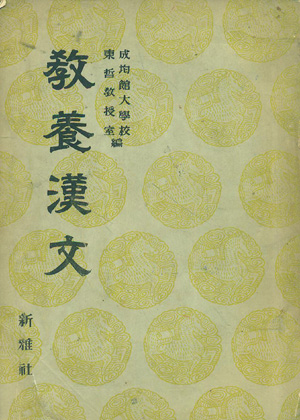 成均館大學校
東哲敎授室編
敎養漢文
新雅社